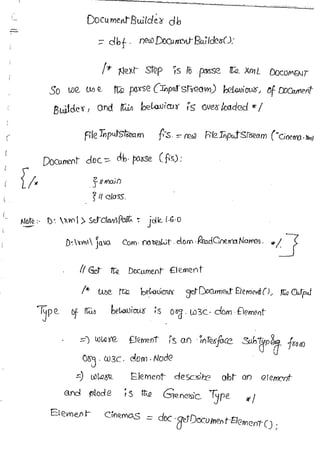 DocumentBuilder db
= dbf. newDocumentBuilder();
/* Next step is to parse the XML DOCUMENT
So we use the parse (InputStream) behaviour, of Document
Builder, and this behaviour is overloaded */
File InputStream fis = new File InputStream ("Cinema.xml
Document doc = db. parse (fis);
} // main
{ /* } // class.
Note:- D:\xml> set classPath = jdk 1.6.0
D:\xml\ java com. .dom. ReadCinemaNames. */ }
// Get the Document Element
/* use the behaviour get Document Element(), the Output
Type of this behaviour is org. w3c. dom. Element
=) where Element is an interface Subtyping from
Org. w3c. dom. Node
=) where Element describe abt an element
and Node is the Generic Type */
Element cinemas = doc.getDocument Element();